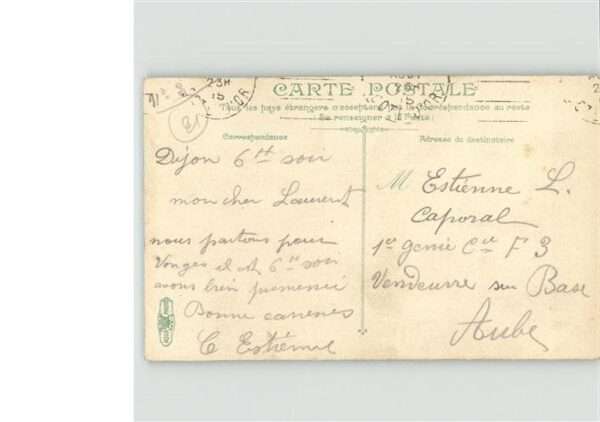 CARTE POSTALE
Tous les pays étrangers n'acceptent pas la correspondance au recto
(Se renseigner à la Poste)
Correspondance
Adresse du destinataire
23H
15
81
Dijon 6 H soir
mon cher Laurent
nous partons pour
Vouges il est 6 H soir
avons bien promener
Bonne
C Estienne
M Estienne L.
Caporal
1er genie Cie F 3
Vendeuvre sur Base
Aube